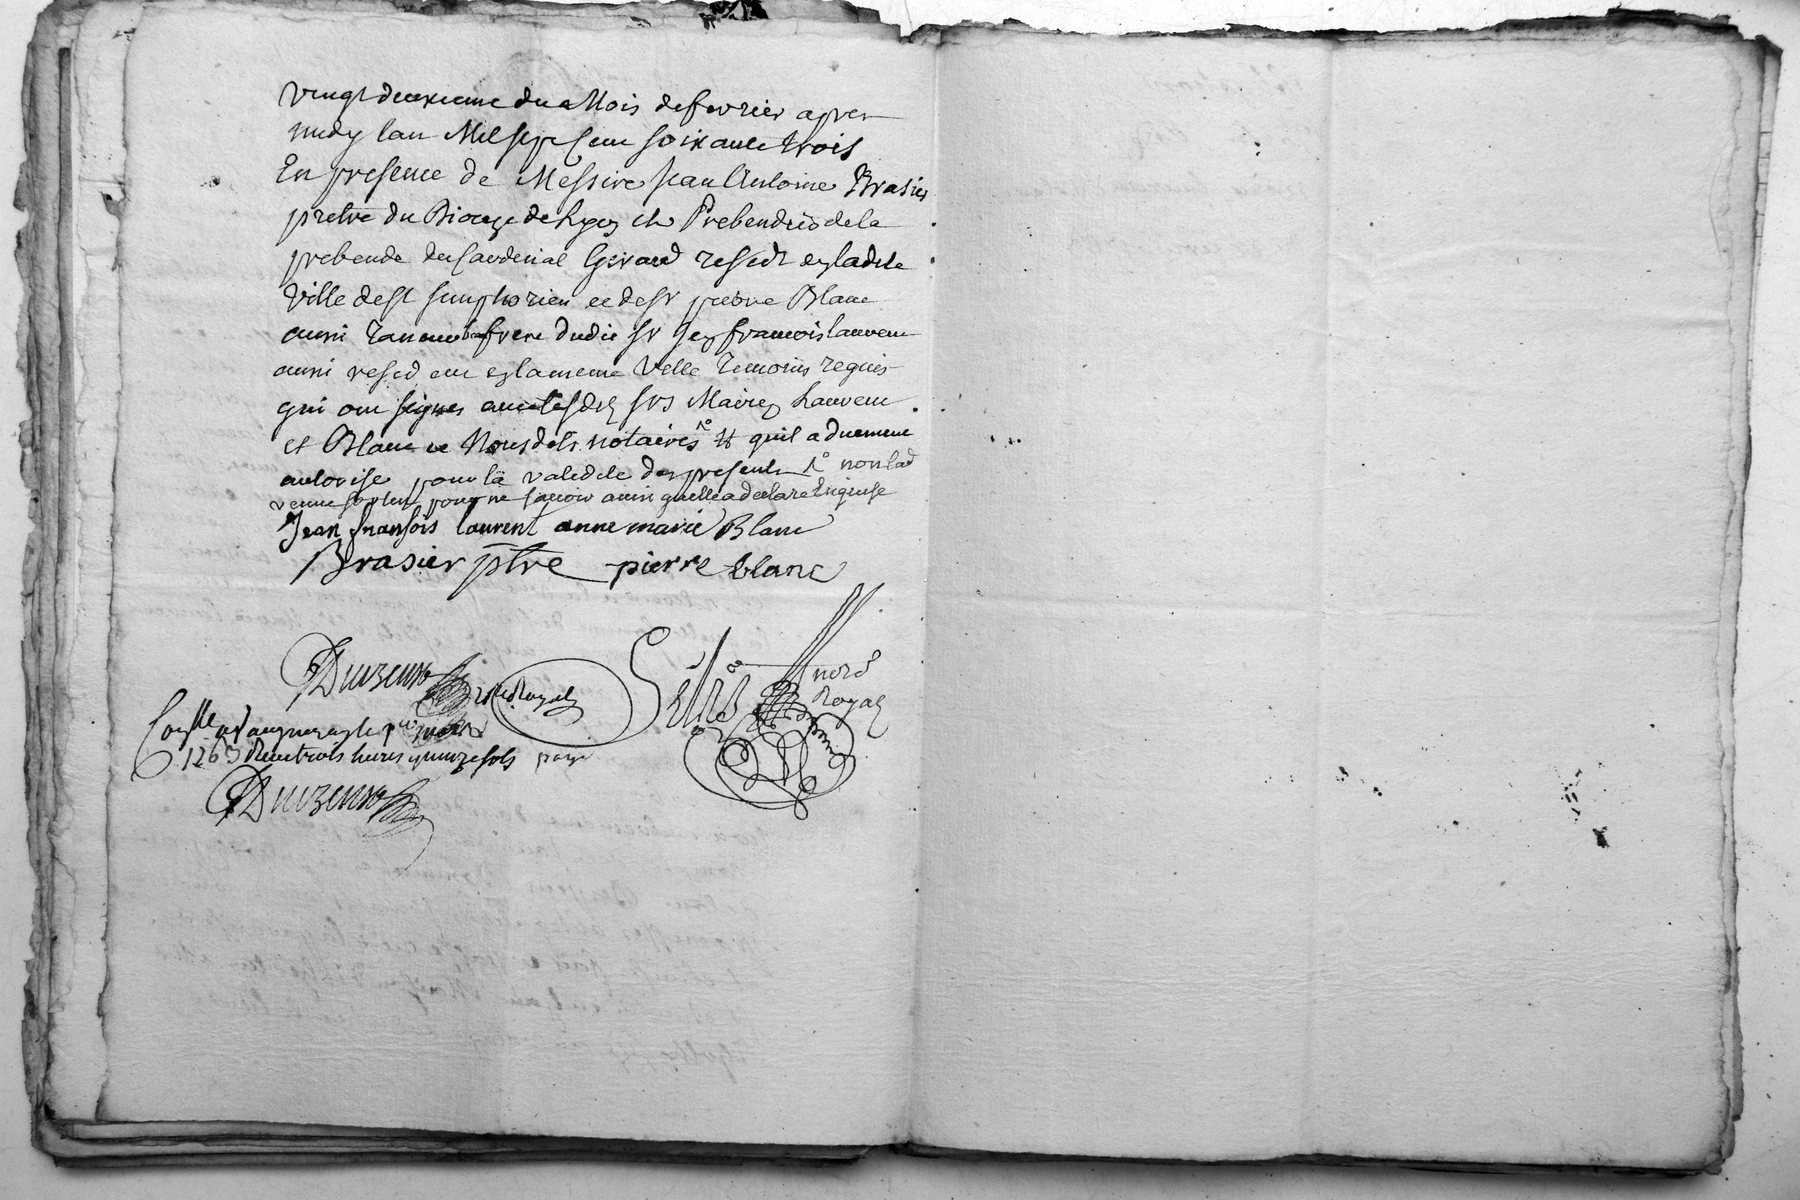 vingt deuxieme du Mois de fevrier apres
midy lan Mil sept Cent soixante trois
En presence de Messire Jean Antoine Brasier
pretre du Dioceze de Lyon et Prebendier de la
prebende du Cardinal Girard resedt en ladite
Ville de St simphorien et de sr pierre Blanc
aussi frere dudit sr Jean francois laurent
aussi resed en la meme Ville Temoins requis
qui ont signes avec lesdits srs Mariez Laurent
et Blanc et Nous dets notaires quil a duement
autorise pour la validite des presentes non lad
venve pour ne scavoir ainsi quelle a declare Enquise
Jean fransois laurent anne marie Blanc
Brasier ptre pierre blanc
not Royal
nore
Royal
Conlle
1763 Recu trois livres quinze sols